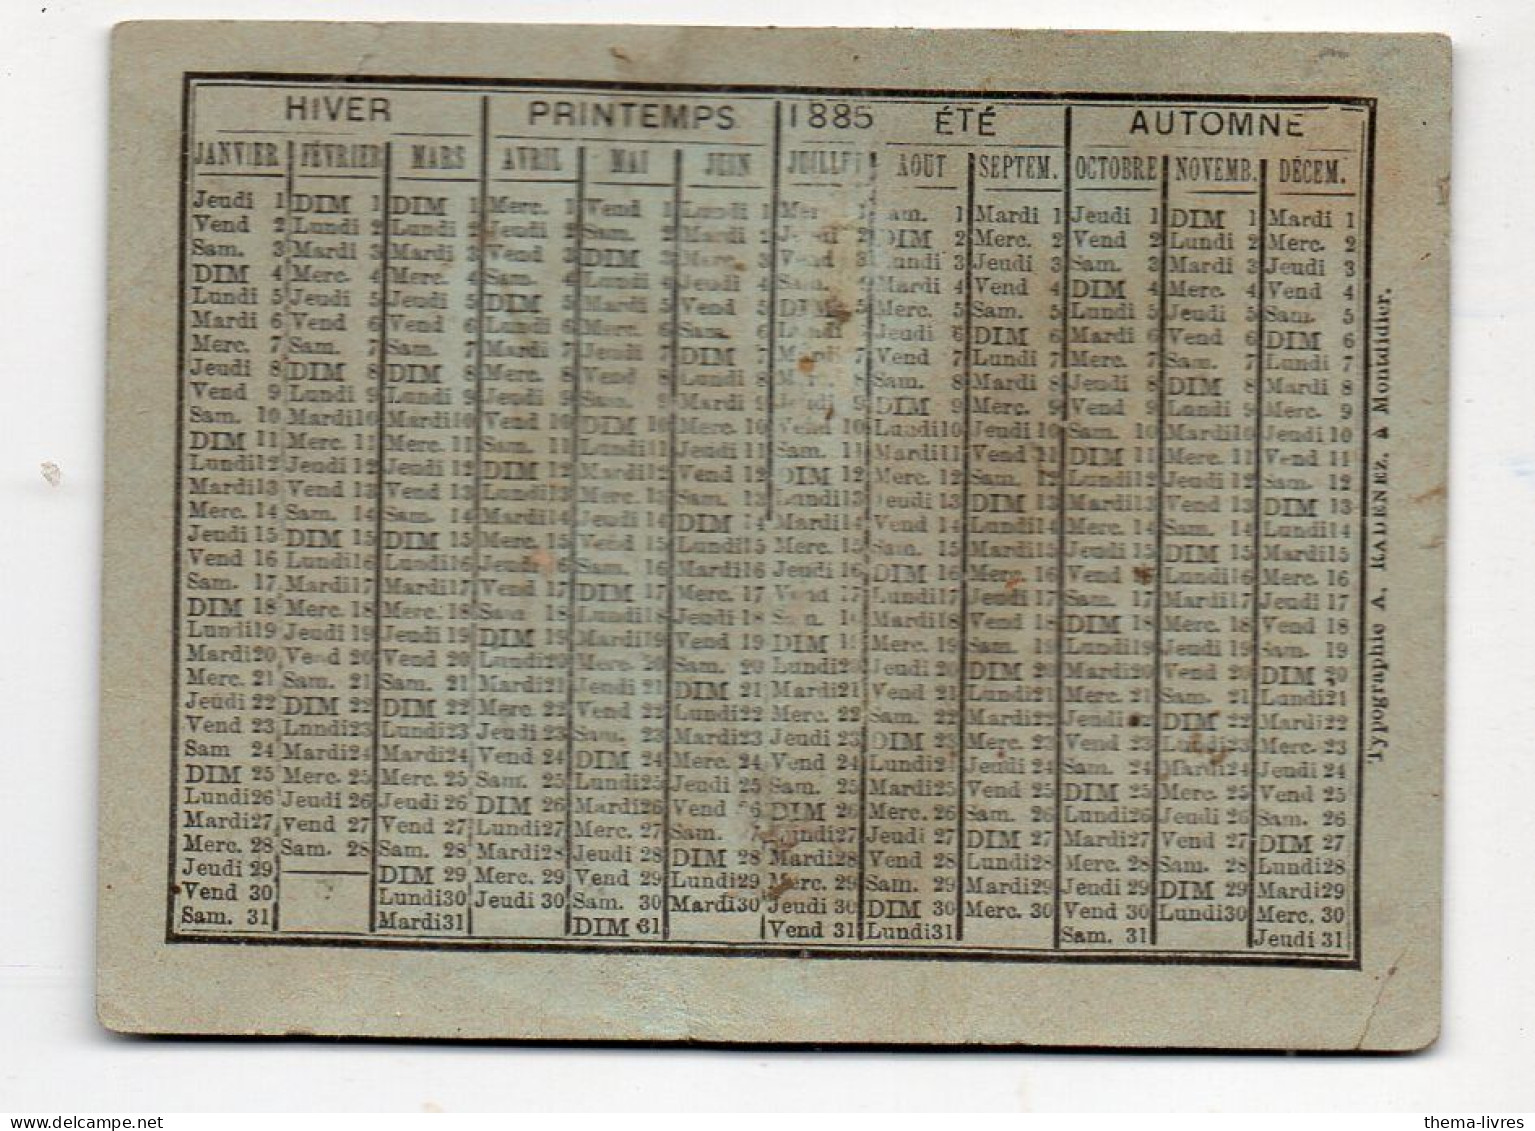 HIVER PRINTEMPS 1885 ÉTÉ AUTOMNE
JANVIER FÉVRIER MARS AVRIL MAI JUIN JUILLET AOUT SEPTEM. OCTOBRE NOVEMB. DÉCEM.
Jeudi 1 DIM 1 DIM 1 Merc. 1 Vend 1 Lundi 1 1 1 Mardi 1 Jeudi 1 DIM 1 Mardi 1
Vend 2 Lundi 2 Lundi 2 Jeudi 2 Sam. 2 Mardi 2 2 DIM 2 Merc. 2 Vend 2 Lundi 2 Merc. 2
Sam. 3 Mardi 3 Mardi 3 Vend 3 DIM 3 Merc. 3 Vend 3 Lundi 3 Jeudi 3 Sam. 3 Mardi 3 Jeudi 3
DIM 4 Merc. 4 Merc. 4 Sam. 4 Lundi 4 Jeudi 4 Sam. 4 Mardi 4 Vend 4 DIM 4 Merc. 4 Vend 4
Lundi 5 Jeudi 5 Jeudi 5 DIM 5 Mardi 5 Vend 5 DIM 5 Merc. 5 Sam. 5 Lundi 5 Jeudi 5 Sam. 5
Mardi 6 Vend 6 Vend 6 Lundi 6 Merc. 6 Sam. 6 Lundi 6 Jeudi 6 DIM 6 Mardi 6 Vend 6 DIM 6
Merc. 7 Sam. 7 Sam. 7 Mardi 7 Jeudi 7 DIM 7 Mardi 7 Vend 7 Lundi 7 Merc. 7 Sam. 7 Lundi 7
Jeudi 8 DIM 8 DIM 8 Merc. 8 Vend 8 Lundi 8 8 Sam. 8 Mardi 8 Jeudi 8 DIM 8 Mardi 8
Vend 9 Lundi 9 Lundi 9 Jeudi 9 Sam. 9 Mardi 9 Jeudi 9 DIM 9 Merc. 9 Vend 9 Lundi 9 Merc. 9
Sam. 10 Mardi 10 Mardi 10 Vend 10 DIM 10 Merc. 10 Vend 10 Lundi 10 Jeudi 10 Sam. 10 Mardi 10 Jeudi 10
DIM 11 Merc. 11 Merc. 11 Sam. 11 Lundi 11 Jeudi 11 Sam. 11 Mardi 11 Vend 11 DIM 11 Merc. 11 Vend 11
Lundi 12 Jeudi 12 Jeudi 12 DIM 12 Mardi 12 Vend 12 DIM 12 Merc. 12 Sam. 12 Lundi 12 Jeudi 12 Sam. 12
Mardi 13 Vend 13 Vend 13 Lundi 13 Merc. 13 Sam. 13 Lundi 13 Jeudi 13 DIM 13 Mardi 13 Vend 13 DIM 13
Merc. 14 Sam. 14 Sam. 14 Mardi 14 Jeudi 14 DIM 14 Mardi 14 Vend 14 Lundi 14 Merc. 14 Sam. 14 Lundi 14
Jeudi 15 DIM 15 DIM 15 Merc. 15 Vend 15 Lundi 15 Merc. 15 Sam. 15 Mardi 15 Jeudi 15 DIM 15 Mardi 15
Vend 16 Lundi 16 Lundi 16 Jeudi Sam. 16 Mardi 16 Jeudi 16 DIM 16 Merc. 16 Vend 16 Lundi 16 Merc. 16
Sam. 17 Mardi 17 Mardi 17 Vend 17 DIM 17 Merc. 17 Vend 17 Lundi 17 Jeudi 17 Sam. 17 Mardi 17 Jeudi 17
DIM 18 Merc. 18 Merc. 18 Sam 18 Lundi 18 Jeudi 18 Mardi 18 Vend 18 DIM 18 Merc. 18 Vend 18
Lundi 19 Jeudi 19 Jeudi 19 DIM 19 Mardi 19 Vend 19 DIM Merc. 19 Sam. 19 Lundi 19 Jeudi 19 Sam. 19
Mardi 20 Vend 20 Vend 20 Lundi 20 Merc. 20 Sam. 20 Lundi Jeudi 20 DIM 20 Mardi 20 Vend 20 DIM 20
Merc. 21 Sam. 21 Sam. 21 Mardi 21 Jeudi 21 DIM 21 Mardi 21 Vend 21 Lundi 21 Merc. 21 Sam. 21 Lundi 21
Jeudi 22 DIM 22 DIM 22 Merc. 22 Vend 22 Lundi 22 Merc. 22 Sam. 22 Mardi 22 Jeudi DIM 22 Mardi 22
Vend 23 Lnndi 23 Lundi 23 Jeudi 23 Sam. 23 Mardi 23 Jeudi 23 DIM 23 Merc. 23 Vend 23 Lundi 23 Merc. 23
Sam 24 Mardi 24 Mardi 24 Vend 24 DIM 24 Merc. 24 Vend 24 Lundi Jeudi 24 Sam. 24 Mardi 24 Jeudi 24
DIM 25 Merc. 25 Merc. 25 Sam. 25 Lundi 25 Jeudi 25 Sam. 25 Mardi 25 Vend 25 DIM 25 Merc. 25 Vend 25
Lundi 26 Jeudi 26 Jeudi 26 DIM 26 Mardi 26 Vend DIM 26 Merc. 26 Sam. 26 Lundi 26 Jeudi 26 Sam. 26
Mardi 27 Vend 27 Vend 27 Lundi 27 Merc. 27 Sam. Lundi 27 Jeudi 27 DIM 27 Mardi 27 Vend 27 DIM 27
Merc. 28 Sam. 28 Sam. 28 Mardi 28 Jeudi 28 DIM 28 Mardi 28 Vend 28 Lundi 28 Merc. 28 Sam. 28 Lundi 28
Jeudi 29 DIM 29 Merc. 29 Vend 29 Lundi 29 Merc. 29 Sam. 29 Mardi 29 Jeudi 29 DIM 29 Mardi 29
Vend 30 Lundi 30 Jeudi 30 Sam. 30 Mardi 30 Jeudi 30 DIM 30 Merc. 30 Vend 30 Lundi 30 Merc. 30
Sam. 31 Mardi 31 DIM 31 Vend 31 Lundi 31 Sam. 31 Jeudi 31
Typographie A. RADENEZ, à Mondidier.
thema-livres